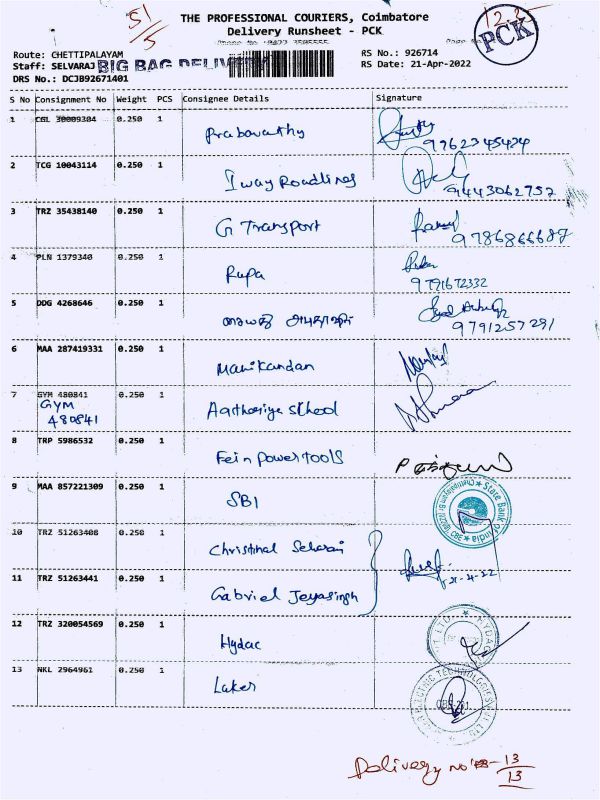 THE PROFESSIONAL COURIERS, Coimbatore
Delivery Runsheet - PCK
51/5
PCK
Route: CHETTIPALAYAM
RS No.: 926714
Staff: SELVARAJ BIG BAG DELIVERY
RS Date: 21-Apr-2022
DRS No.: DCJB92671401
S No Consignment No Weight PCS Consignee Details Signature
1 CGL 30009304 0.250 1 Prabavathy 9762345424
2 TCG 10043114 0.250 1 Iway Roadlines 9443062752
3 TRZ 35438140 0.250 1 G Transport 9786866687
4 PLN 1379340 0.250 1 Rupa 9791672332
5 DDG 4268646 0.250 1 9791257291
6 MAA 287419331 0.250 1 Manikandan
7 GYM 480841 0.250 1 Aathariya School
GYM
480841
8 TRP 5986532 0.250 1 Fein Powertools
9 MAA 857221309 0.250 1 SBI
State Bank of India
10 TRZ 51263408 0.250 1 Christinal
11 TRZ 51263441 0.250 1 Gabriel Jeyasingh
21-4-22
12 TRZ 320054569 0.250 1 Hydac
HYDAC
13 NKL 2964961 0.250 1 Laker
ELECTRIC TECHNOLOGIES
Delivery No's - 13/13